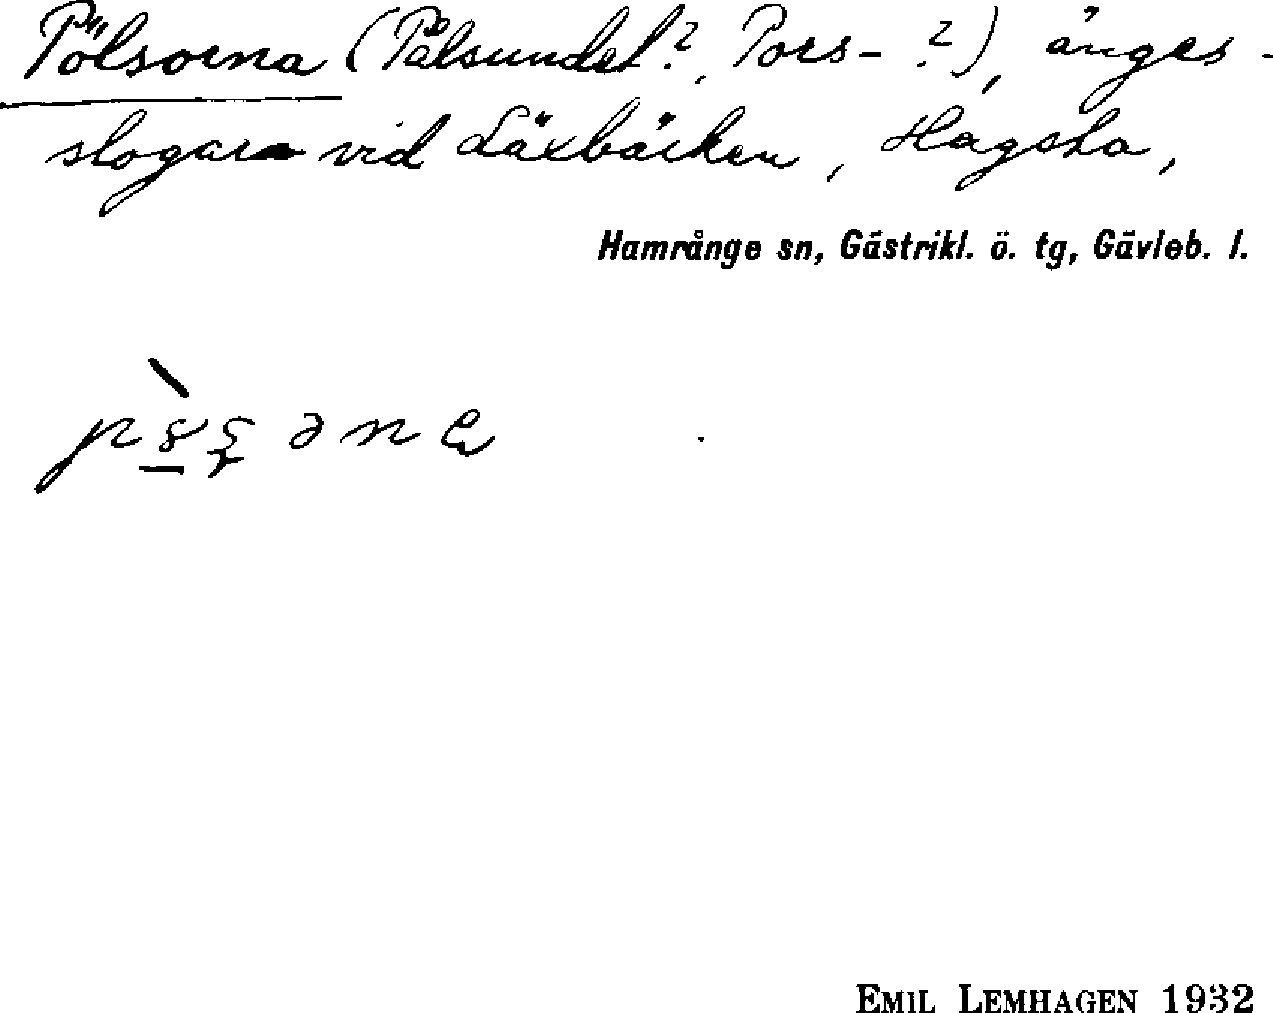 Pölsorna (Pålsundet?, Pors- ?), änges-
slogar vid Läxbäcken, Hagsta,
Hamrånge sn, Gästrikl. ö. tg, Gävleb. l.
EMIL LEMHAGEN 1932